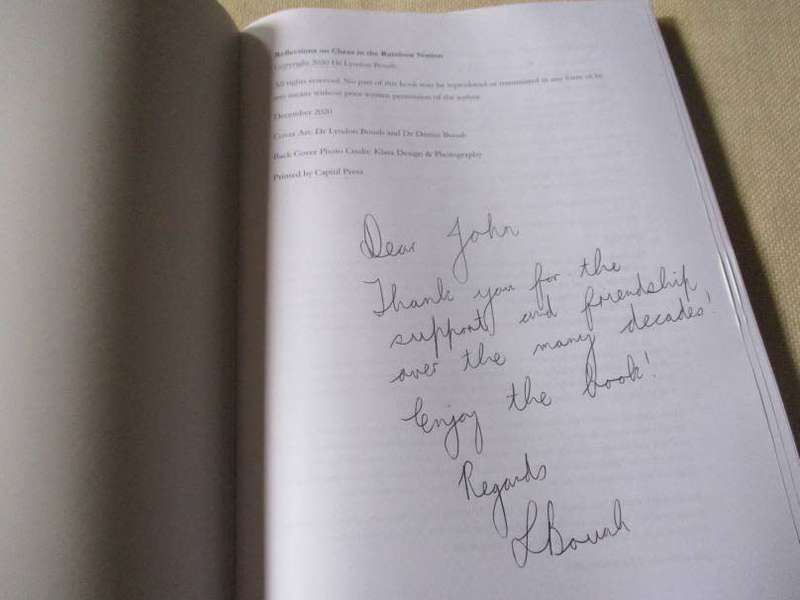 Reflections on Chess in the Rainbow Nation
Copyright 2020 Dr Lyndon Bouah
All rights reserved. No part of this book may be reproduced or transmitted in any form or by
any means without prior written permission of the author.
December 2020
Cover Art: Dr Lyndon Bouah and Dr Denise Bouah
Back Cover Photo Credit: Klara Design & Photography
Printed by Capitil Press
Dear John
Thank you for the
support and friendship
over the many decades!
Enjoy the book!
Regards
LBouah